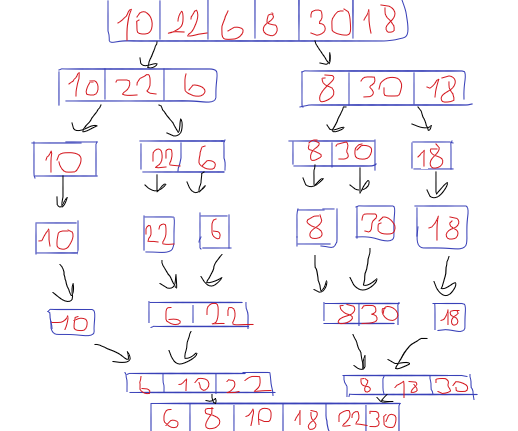 10 22 6 8 30 18
10 22 6 8 30 18
10 22 6 8 30 18
10 22 6 8 30 18
10 6 22 8 30 18
6 10 22 8 18 30
6 8 10 18 22 30